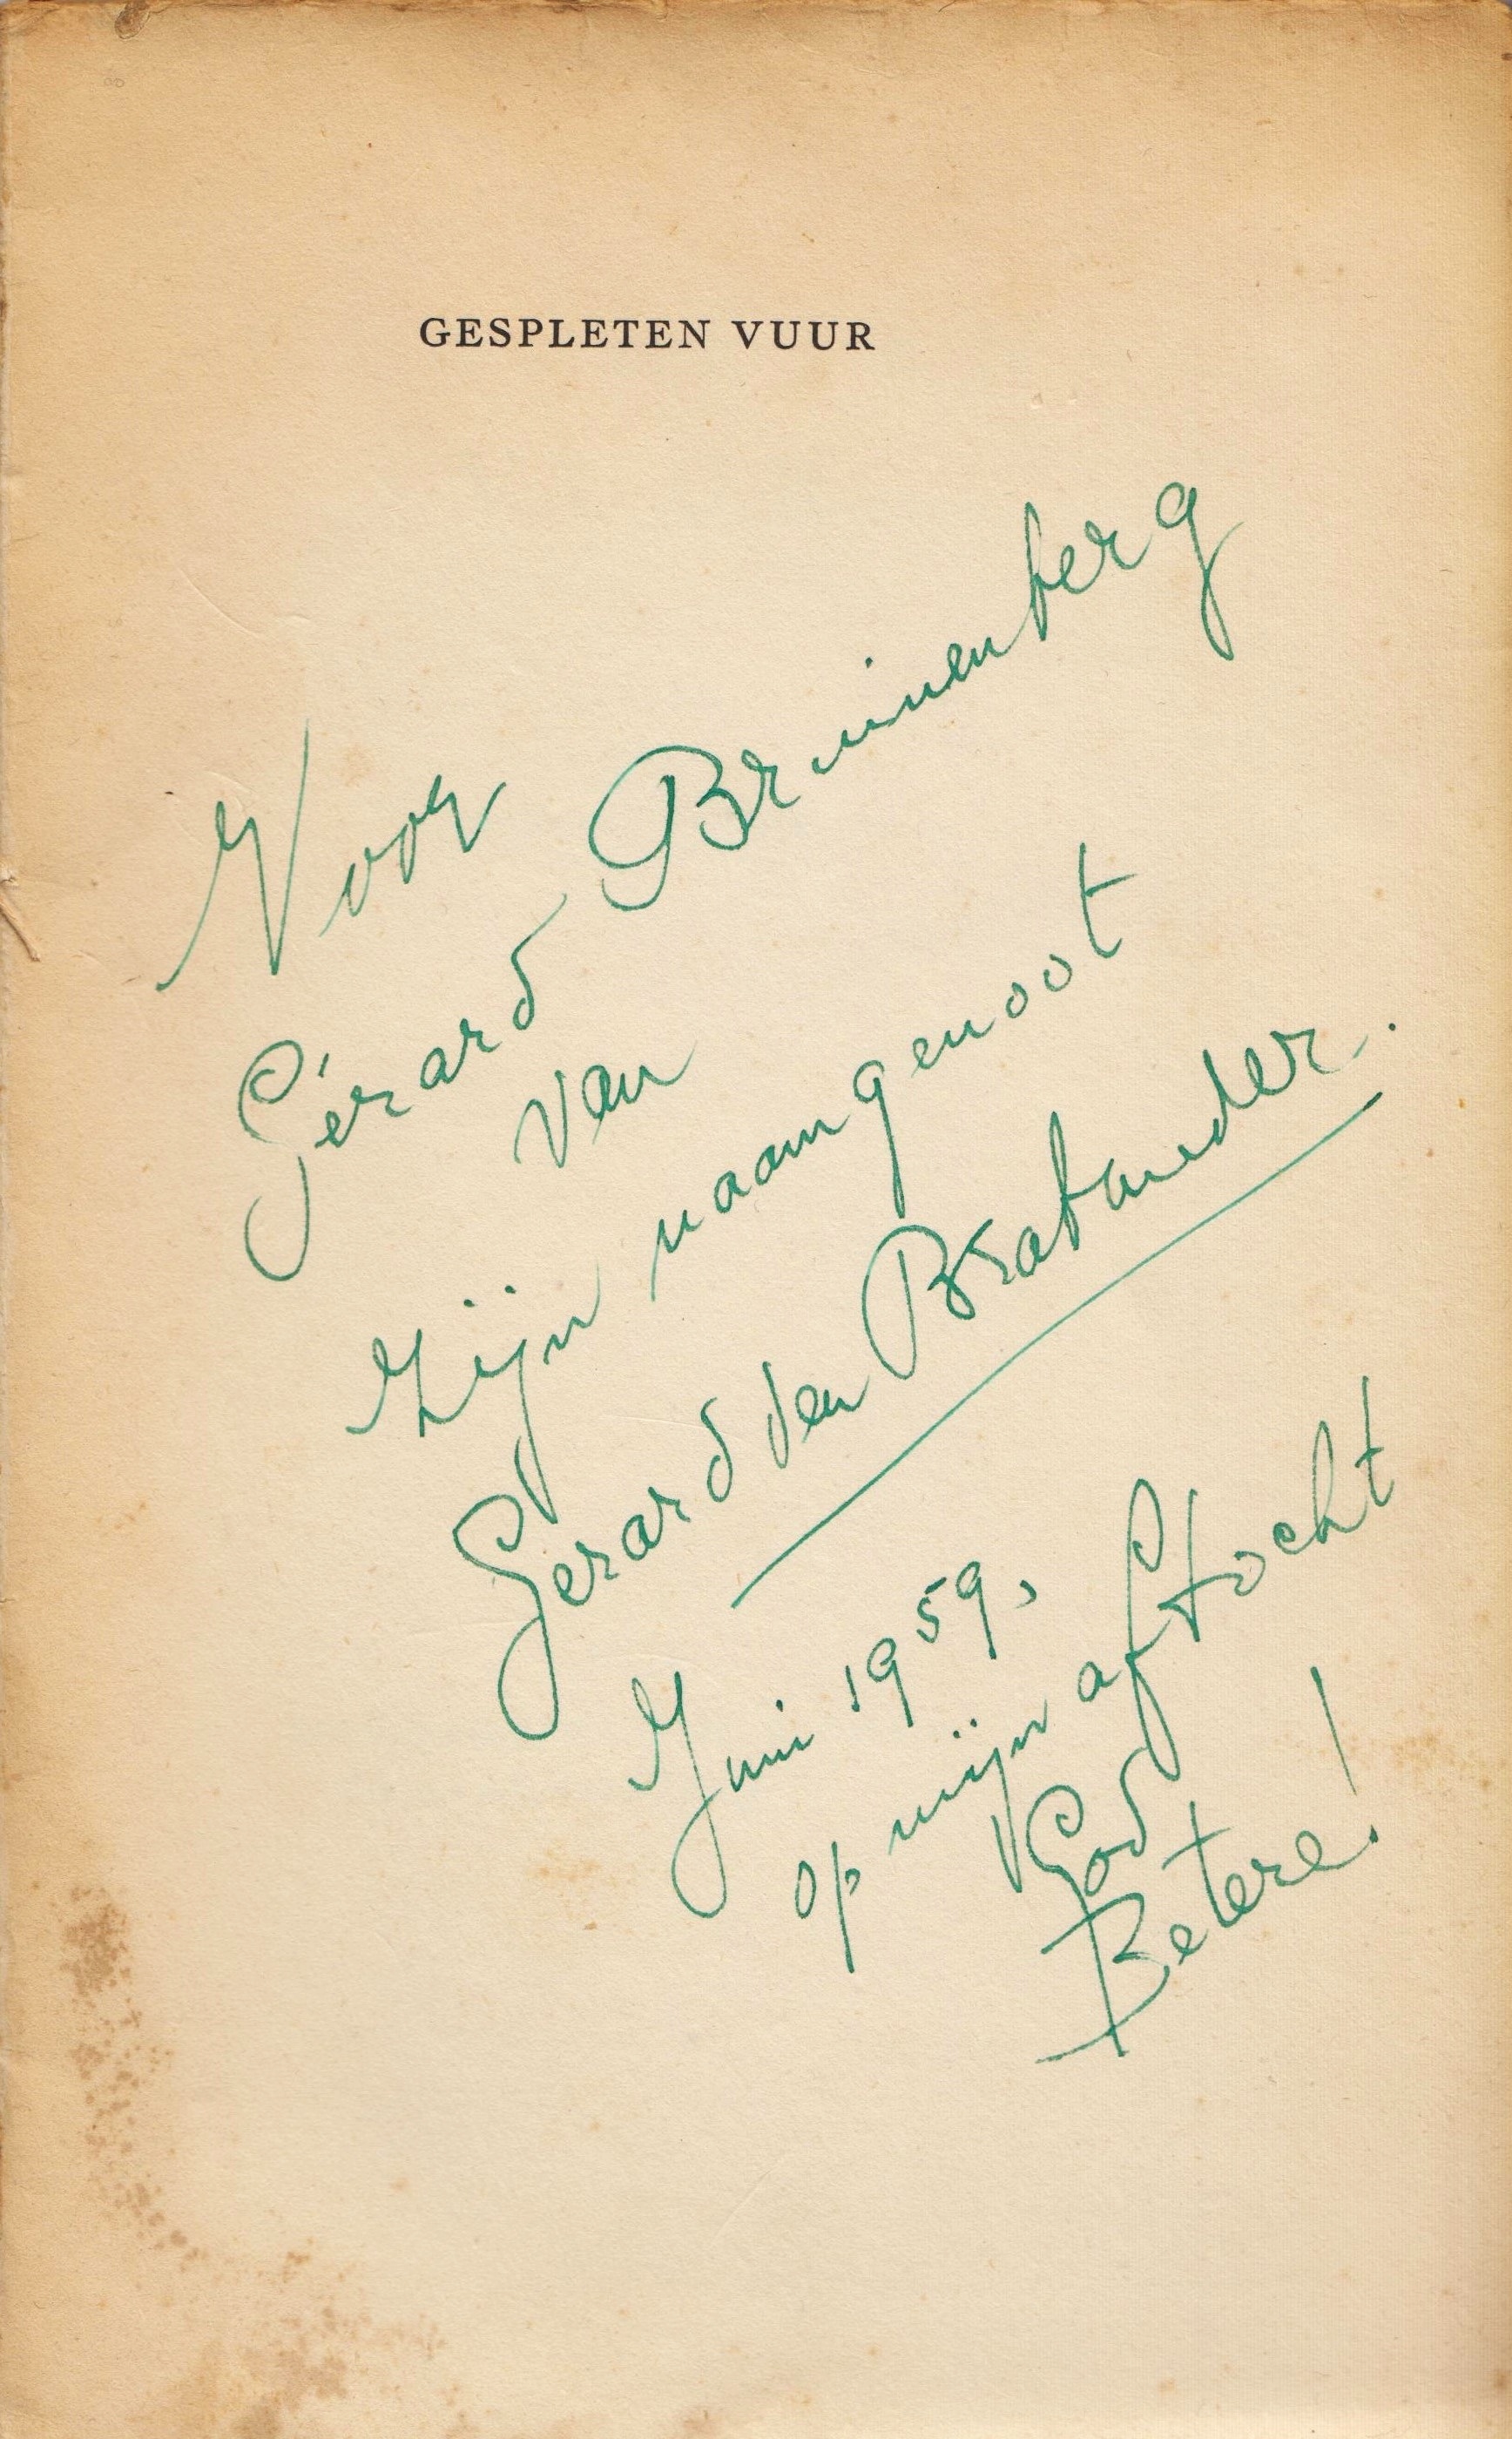 GESPLETEN VUUR
Voor
Gérard Bruinenberg
van
zijn naamgenoot
Gerard den Brabander.
Juni 1959,
op mijn aftocht
God
Betere!